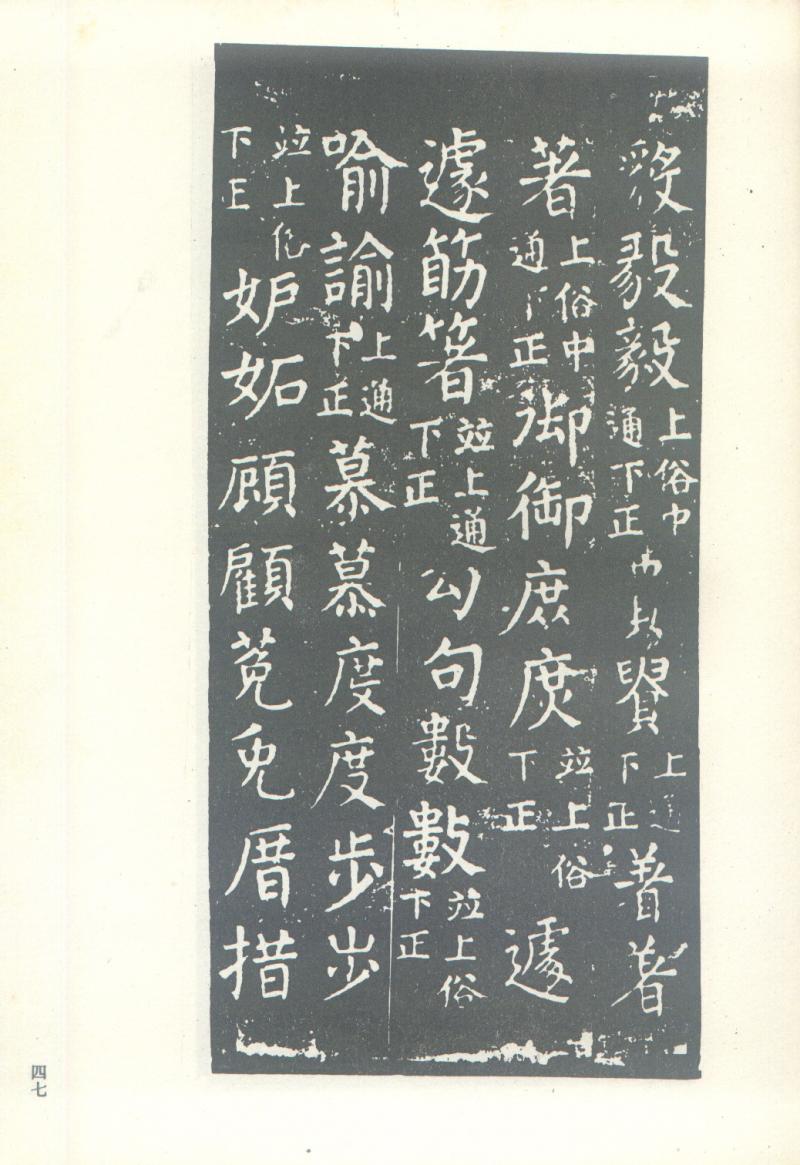 毅毅上俗中通下正上通下正着著
著上俗中通下正御御庶庶竝上俗下正遽
遽筯箸竝上通下正勾句數數竝上俗下正
喻諭上通下正慕慕度度步步
竝上俗下正妒妬頋顧菟兔厝措
四七